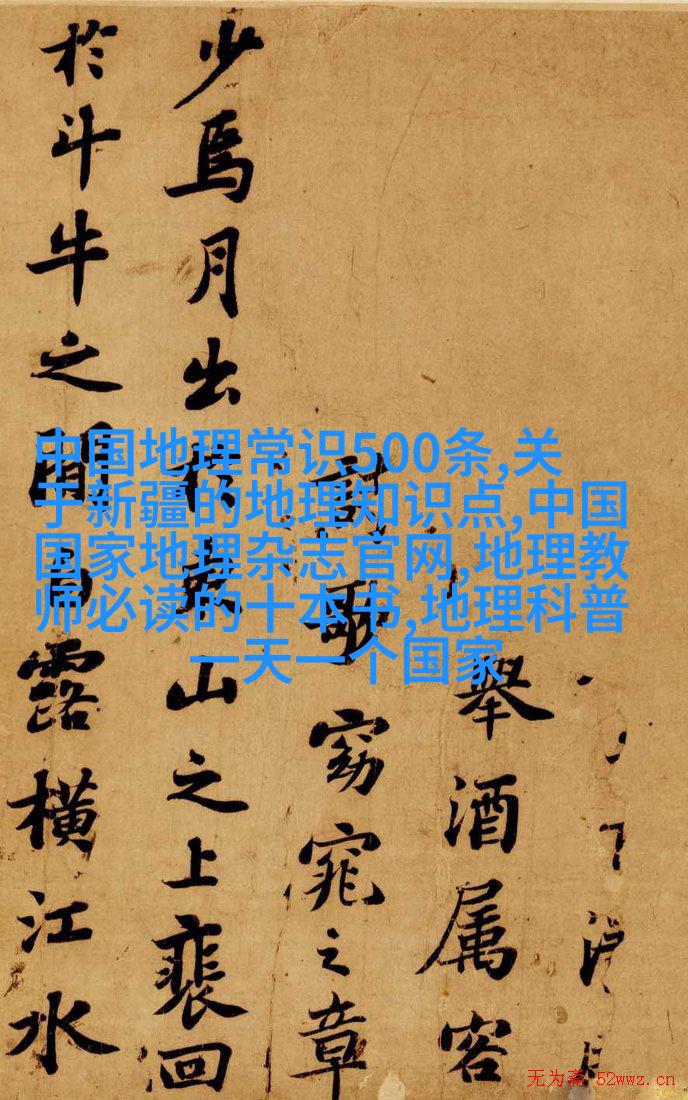 舉酒属客
詩歌窈窕之章
少焉月出於東山之上裴回
於斗牛之間白露横江水
中国地理常识500条,关
于新疆的地理知识点,中国
国家地理杂志官网,地理教
师必读的十本书,地理科普
一天一个国家
无为斋 52wwz.cn